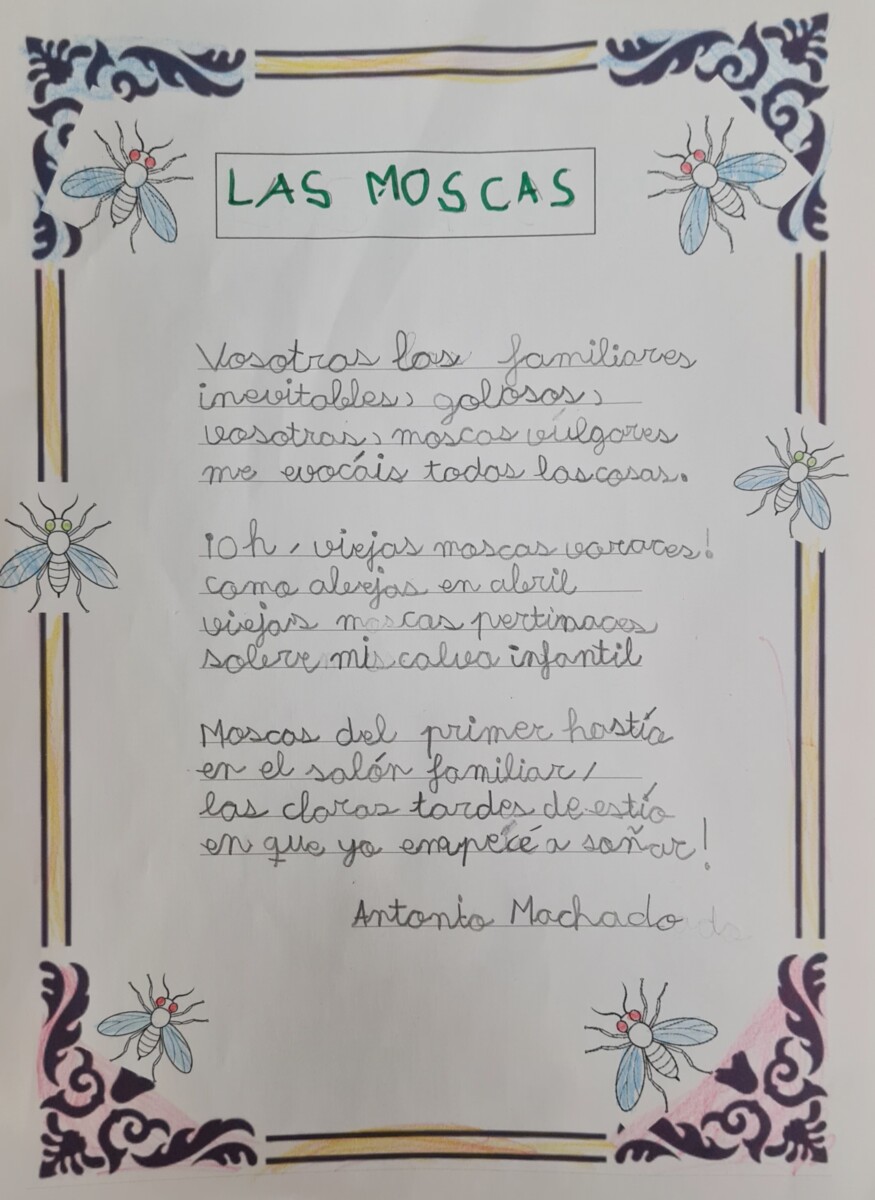 LAS MOSCAS
Vosotras las familiares
inevitables, golosas,
vosotras, moscas vúlgares
me evocáis todas las cosas.
¡Oh, viejas moscas voraces!
como abejas en abril
viejas moscas pertinaces
sobre mi calva infantil
Moscas del primer hastía
en el salón familiar,
las claras tardes de estío
en que yo empecé a soñar!
Antonio Machado